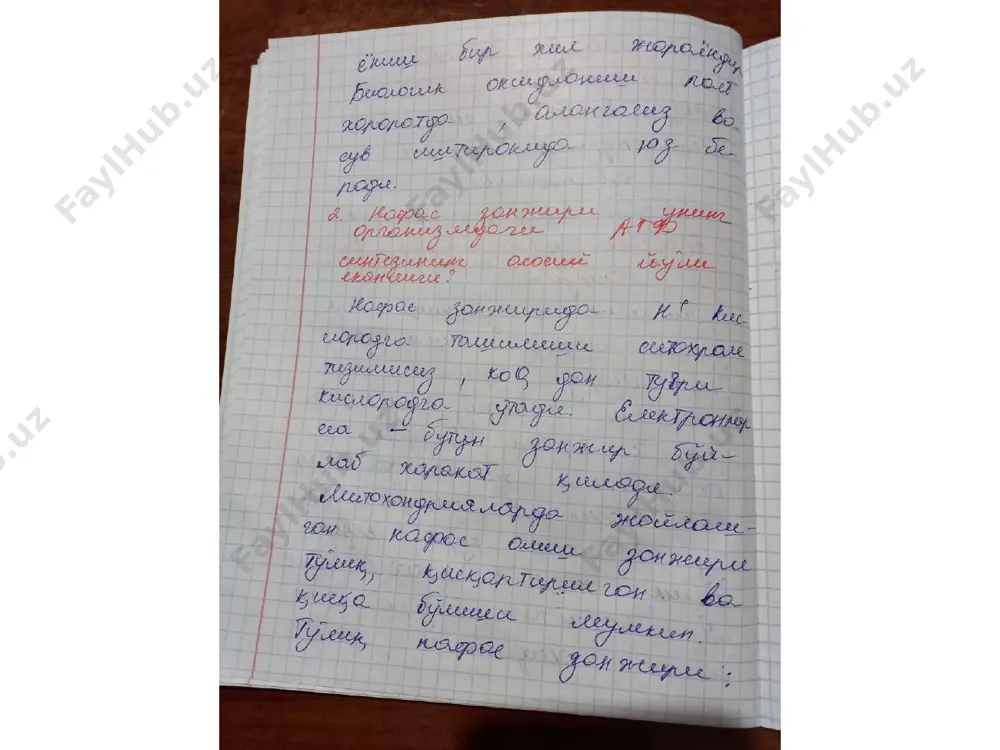 ёниш бир хил жараёндир
Биологик оксидланиш паст
хароратда, алангасиз ва
сув иштирокида юз бе-
ради.
2. Нафас занжири унинг
организмдаги АТФ
синтезининг асосий йўли
эканлиги?
Нафас занжирида H⁺ Кис-
лородга ташилиши ситохром
тизимисиз, КоQ дан туғри
кислородга ўтади. Електронлар
эса – бутун занжир бўй-
лаб харакат қилади.
Митохондрияларда жойлаш-
ган нафас олиш занжири
тўлиқ, қисқартирилган ва
қисқа бўлиши мумкин.
Тўлиқ нафас занжири:
FaylHub.uz
FaylHub.uz
FaylHub.uz
FaylHub.uz
FaylHub.uz
FaylHub.uz